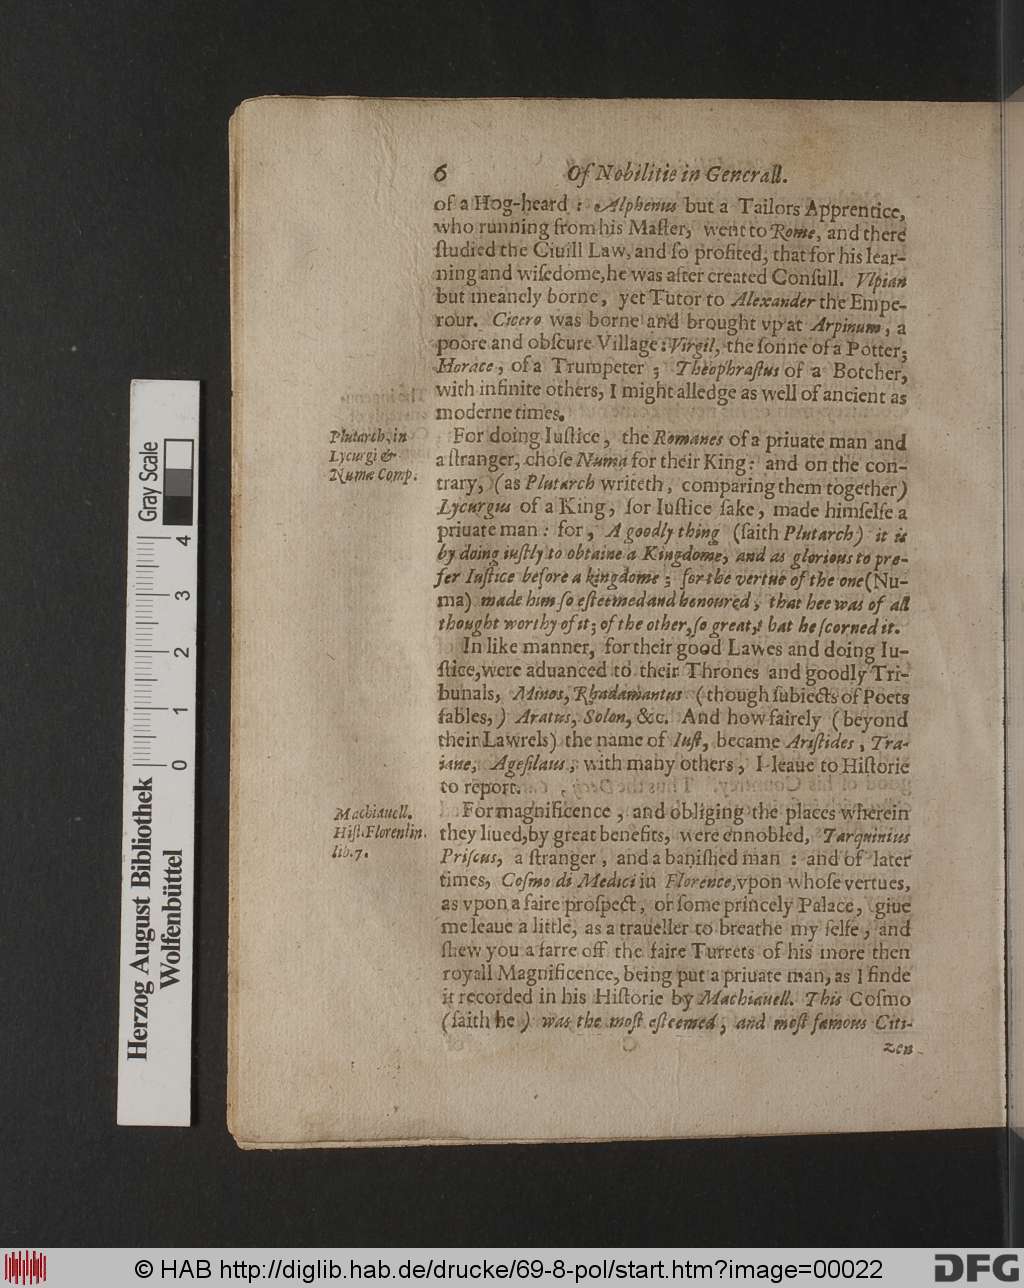 6 Of Nobilitie in Generall.
of a Hog-heard : Alphenus but a Tailors Apprentice,
who running from his Maſter, went to Rome, and there
ſtudied the Ciuill Law, and ſo profited, that for his lear-
ning and wiſedome, he was after created Conſull. Vlpian
but meanely borne, yet Tutor to Alexander the Empe-
rour. Cicero was borne and brought vp at Arpinum, a
poore and obſcure Village : Virgil, the ſonne of a Potter;
Horace, of a Trumpeter ; Theophraſtus of a Botcher,
with infinite others, I might alledge as well of ancient as
moderne times.
Plutarch, in
Lycurgi &
Numæ Comp.
For doing Iuſtice, the Romanes of a priuate man and
a ſtranger, choſe Numa for their King : and on the con-
trary, (as Plutarch writeth, comparing them together)
Lycurgus of a King, for Iuſtice ſake, made himſelfe a
priuate man : for, A goodly thing (ſaith Plutarch) it is
by doing iuſtly to obtaine a Kingdome, and as glorious to pre-
fer Iuſtice before a kingdome ; for the vertue of the one (Nu-
ma) made him ſo eſteemed and honoured, that hee was of all
thought worthy of it; of the other, ſo great, t hat he ſcorned it.
In like manner, for their good Lawes and doing Iu-
ſtice, were aduanced to their Thrones and goodly Tri-
bunals, Minos, Rhadamantus (though ſubiects of Poets
fables,) Aratus, Solon, &c. And how fairely (beyond
their Lawrels) the name of Iuſt, became Ariſtides, Tra-
iane, Ageſilaus, with many others, I leaue to Hiſtorie
to report.
Machiauell.
Hiſt. Florentin.
lib. 7.
For magnificence, and obliging the places wherein
they liued, by great benefits, were ennobled, Tarquinius
Priſcus, a ſtranger, and a baniſhed man : and of later
times, Coſmo di Medici in Florence, vpon whoſe vertues,
as vpon a faire proſpect, or ſome princely Palace, giue
me leaue a little, as a traueller to breathe my ſelfe, and
ſhew you a farre off the faire Turrets of his more then
royall Magnificence, being put a priuate man, as I finde
it recorded in his Hiſtorie by Machiauell. This Coſmo
(ſaith he) was the moſt eſteemed, and moſt famous Citi-
zen
Gray Scale
0 1 2 3 4
Herzog August Bibliothek
Wolfenbüttel
© HAB http://diglib.hab.de/drucke/69-8-pol/start.htm?image=00022
DFG